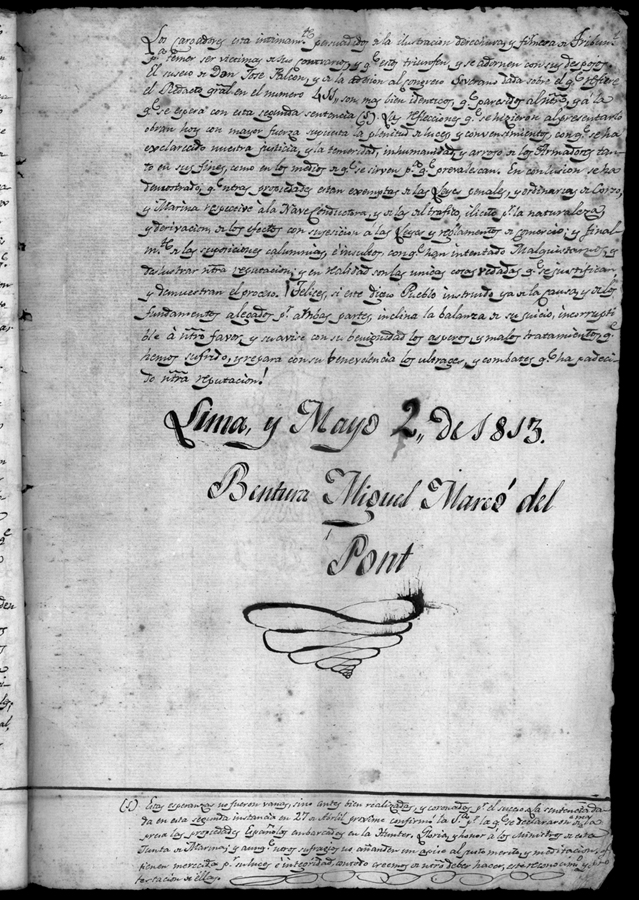 Los cargadores esta intimamte. persuadidos a la ilustracion derechura, y firmeza de Tribunl.
pa. temer ser victimas de sus contrarios, y qe. estos triunfen, y se adornen con sus despojos.
El suceso de Dan Jose Falcon, y a la adicion al congreso Soverano dada sobre el qe. refiere
El Redactor gral en el numero son mas bien identicos, qe. parecidos al ntro, y a la
qe. se espera con esta segunda sentencia (S) Las reflecciones qe. se hicieron al presentarlo
obran hoy con mayor fuerza supuesta la plenitud de luces, y convensimientos, con qe. se ha
exclarecido nuestra justicia, y la temeridad, inhumanidad, y arrojo de los Armadores tan-
to en sus fines, como en los medios de qe. se sirven pa. qe. prevalescan. En conclusion se ha
demostrado, qe. ntras propiedades estan exemptas de las Leyes penales, y ordinarias de Corso,
y Marina respective á la Nave Conductora, y de la del trafico, ilicito pr. la naturaleza,
y derivacion de los efectos con sugecion a las Leyes y reglamentos de comercio; y final-
mte. de las suposiciones calumnias, é insultos con qe. han intentado Malquistarnos, y
deslustrar ntra reputacion; y en realidad son las unicas cosas vedadas qe. se justifican,
y demuestran el proceso. ¡Felices, si este digno Pueblo instruido ya de la causa, y de los
fundamentos alegados pr. ambas partes, inclina la balanza de su juicio, incorrupti-
ble á ntro favor, y suavisa con su benignidad los asperos, y malos tratamientos qe.
hemos sufrido, y repara con su benevolencia los ultrages, y combates qe. ha padeci-
do ntra reputacion!
Lima, y Mayo 2,, de 1813.
Bentura Miguel Marcó del
Pont
(S) Estas esperanzas no fueron vanas, sino antes bien realizadas, y coronadas pr. el suceso a la sentencia da-
da en esta segunda instancia en 27 de Abril proximo confirmó la pr. la qe. se declararon
las propiedades Españolas embarcadas en la Hunter. Gloria, y honor á los Ministros de esta
Junta de Marina; y aunqe. ntros sufragios no añanden un apice al justo merito, y meditacion,
tienen merecida pr. sus luces é integridad, con todo creemos de ntro deber hacer, este reconocimto. y
tacion de ellas.